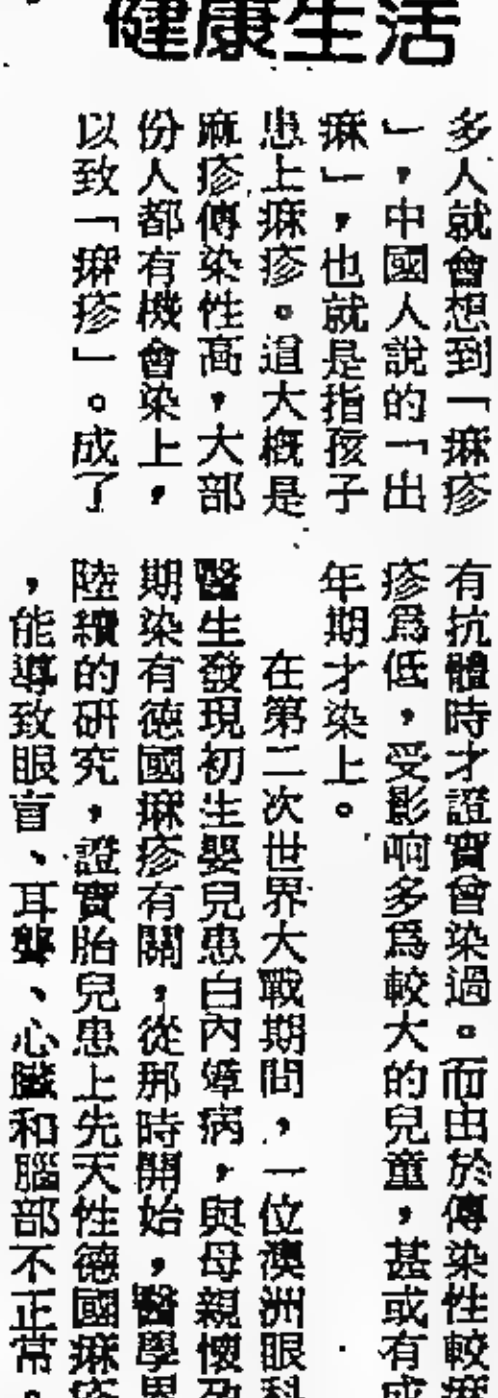 健康生活
多人就會想到「痳疹
」，中國人說的「出
痳」，也就是指孩子
患上痳疹。這大概是
痳疹傳染性高，大部
份人都有機會染上，
以致「痳疹」。成了
有抗體時才證實會染過。而由於傳染性較痳
疹爲低，受影响多爲較大的兒童，甚或有成
年期才染上。
在第二次世界大戰期間，一位澳洲眼科
醫生發現初生嬰兒患白內嶂病，與母親懷孕
期染有德國痳疹有關，從那時開始，醫學界
陸續的研究，證實胎兒患上先天性德國痳疹
，能導致眼盲、耳聾、心臟和腦部不正常。